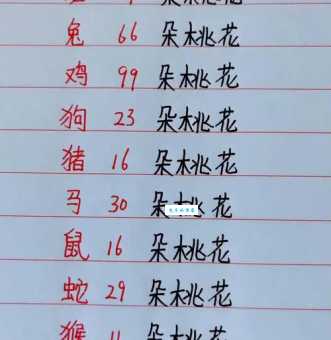 兔 66 朵桃花
鸡 99 朵桃花
狗 23 朵桃花
猪 16 朵桃花
马 30 朵桃花
鼠 16 朵桃花
蛇 29 朵桃花
猴 11 朵桃花